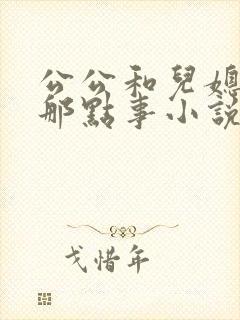 公公和兒媳
那點事小說
戈惜年